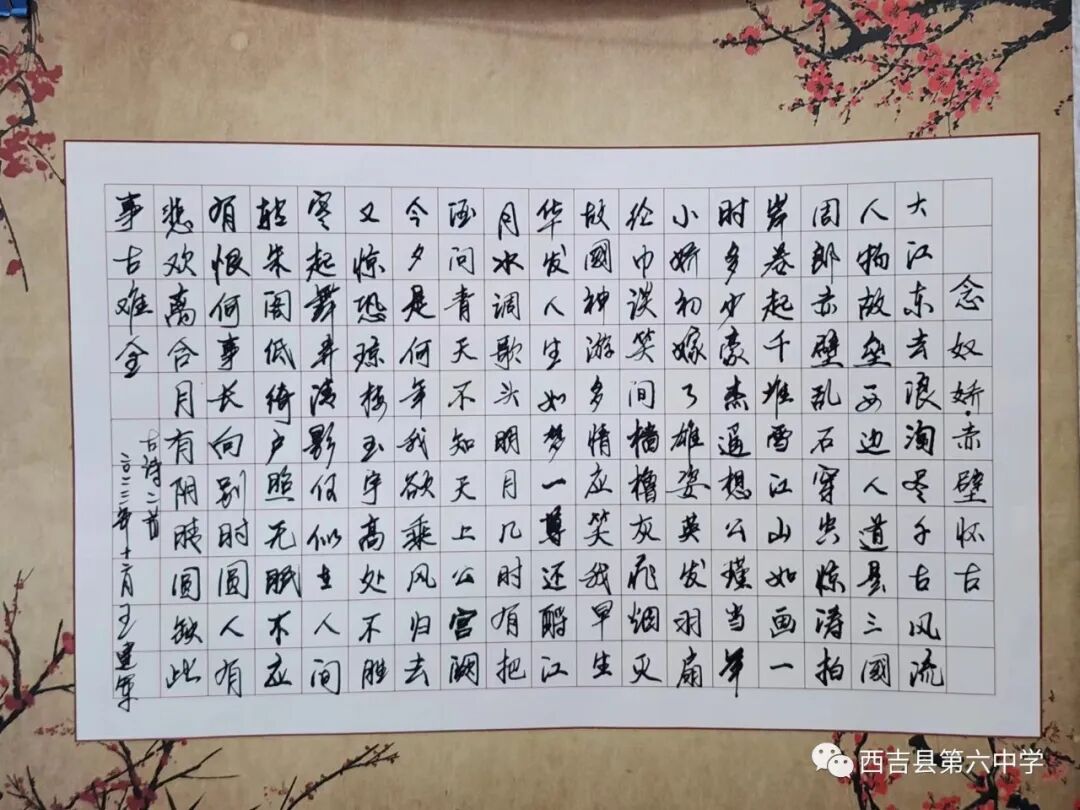 念奴娇·赤壁怀古
大江东去浪淘尽千古风流
人物故垒西边人道是三國
周郎赤壁乱石穿空惊涛拍
岸卷起千堆雪江山如画一
时多少豪杰遥想公瑾当年
小娇初嫁了雄姿英发羽扇
纶巾谈笑间樯橹灰飛烟灭
故國神游多情应笑我早生
华发人生如梦一尊还酹江
月水调歌头明月几时有把
酒问青天不知天上公宫阙
今夕是何年我欲乘风归去
又惊恐琼楼玉宇高处不胜
寒起舞弄清影何似在人间
转朱阁低绮户照无眠不应
有恨何事长向别时圆人有
悲欢离合月有阴晴圆缺此
事古难全
古诗二首
二〇二二年十二月王建军
西吉县第六中学